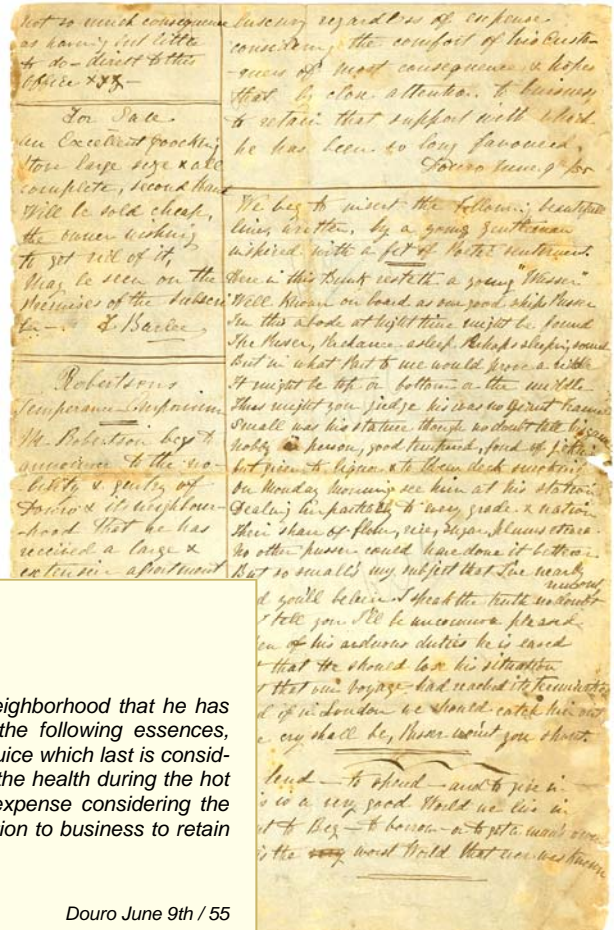 not so much consequence
as having but little
to do - direct to this
Office xxx -
For Sale
an Excellent Cooking
Stove large size & all
complete, second hand
Will be sold cheap,
the owner wishing
to get rid of it,
May be seen on the
Premises of the Subscri
ber -
Robertsons
Temperance Emporium
Mr Robertson begs to
announce to the no-
-bility & gentry of
Douro & its neighbour-
-hood that he has
received a large &
extensive assortment
luxury regardless of expense
considering the comfort of his Custo-
-mers of most consequence & hopes
that by close attention to business
to retain that support with which
he has been so long favoured.
Douro June 9th / 55
We beg to insert the following beautiful
lines, written by a young gentleman
inspired with a fit of Poetic sentiment.
Here in this Bunk resteth a young
Well known on board as our good ships Pusser
In this abode at night time might be found
The Pusser, Perchance asleep Perhaps sleeping sound
But in what Part to me would prove a riddle
It might be top or bottom or the middle
Thus might you judge his was no Giant frame
Small was his stature though no doubt tall his
person, good tempered, fond of
to liquor & to them deck smoking
on Monday Morning see him at his station
Dealing impartially to every grade & nation
Their share of flour, rice, sugar, plums etcera
No other pusser could have done it better
But so small's my subject that I've nearly
you'll believe I speak the truth no doubt
tell you I'll be uncommon pleased
of his arduous duties he is eased
that He should lose his situation
that our Voyage had reached its termination
if in London we should catch him out
cry shall be, Pusser won't you shout.
lend - to spend - and to give in
is a very good World we live in
to Beg - to borrow - or to get a man's own
the worst World that ever was known
eighborhood that he has
the following essences,
uice which last is consid-
the health during the hot
expense considering the
tion to business to retain
Douro June 9th / 55